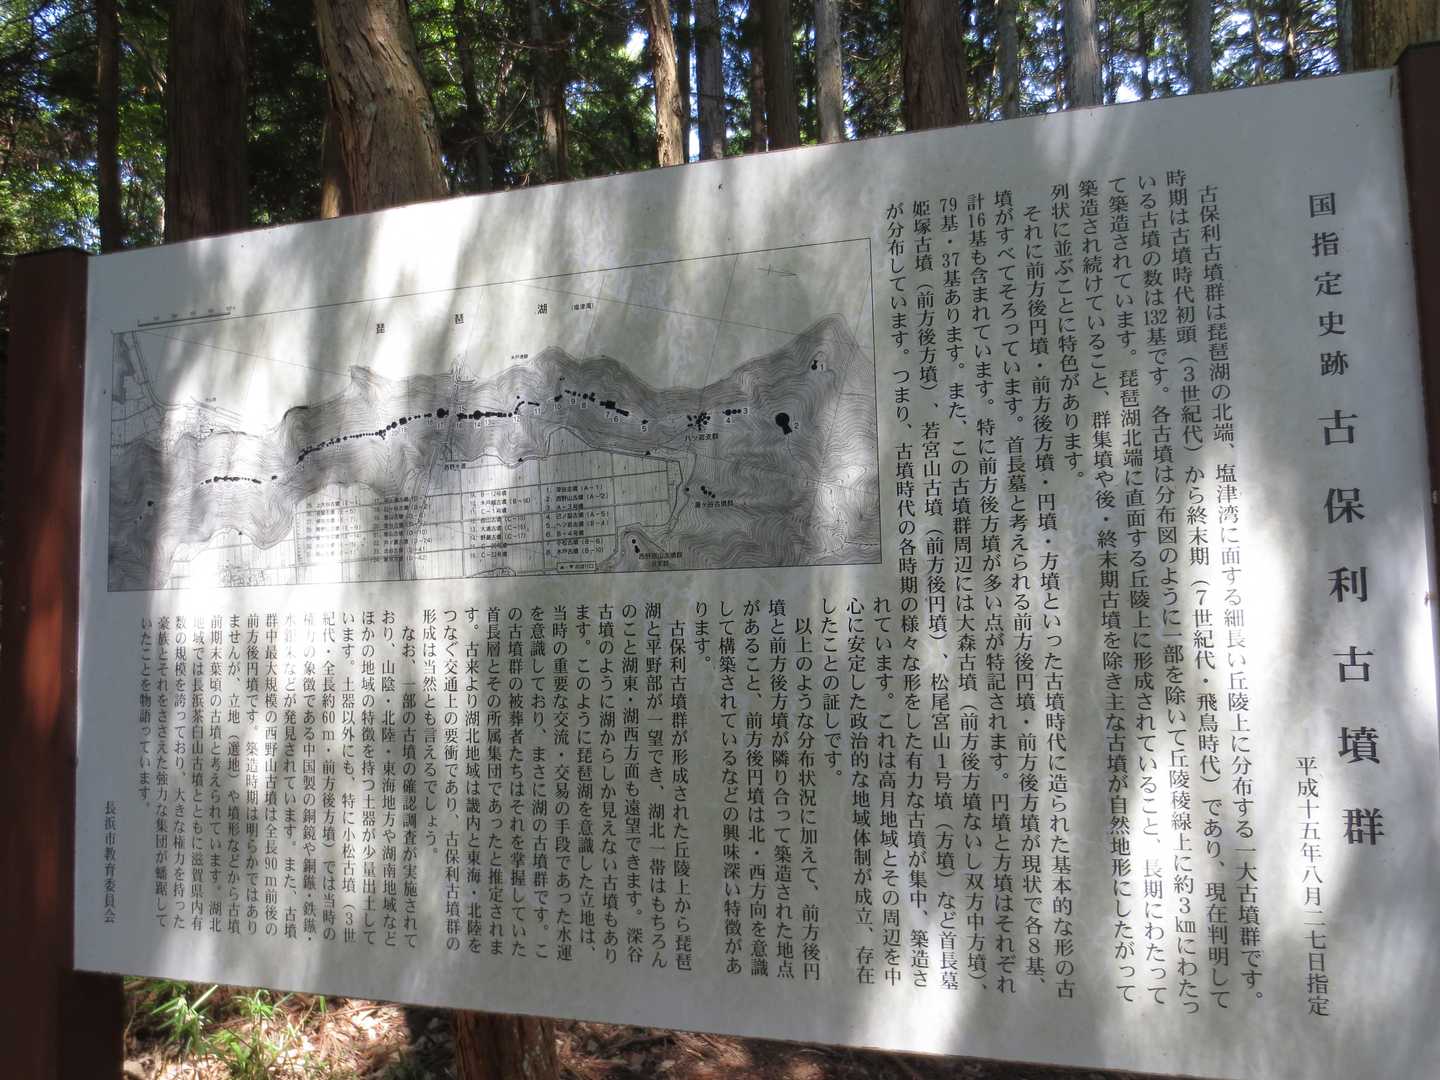 国指定史跡 古保利古墳群
平成十五年八月二七日指定
古保利古墳群は琵琶湖の北端、塩津湾に面する細長い丘陵上に分布する一大古墳群です。
時期は古墳時代初頭（３世紀代）から終末期（７世紀代・飛鳥時代）であり、現在判明して
いる古墳の数は132基です。各古墳は分布図のように一部を除いて丘陵稜線上に約３㎞にわたっ
て築造されています。琵琶湖北端に直面する丘陵上に形成されていること、長期にわたって
築造され続けていること、群集墳や後・終末期古墳を除き主な古墳が自然地形にしたがって
列状に並ぶことに特色があります。
それに前方後円墳・前方後方墳・円墳・方墳といった古墳時代に造られた基本的な形の古
墳がすべてそろっています。首長墓と考えられる前方後円墳・前方後方墳が現状で各８基、
計16基も含まれています。特に前方後方墳が多い点が特記されます。円墳と方墳はそれぞれ
79基・37基あります。また、この古墳群周辺には大森古墳（前方後方墳ないし双方中方墳）、
姫塚古墳（前方後方墳）、若宮山古墳（前方後円墳）、松尾宮山１号墳（方墳）など首長墓
が分布しています。つまり、古墳時代の各時期の様々な形をした有力な古墳が集中、築造さ
れています。これは高月地域とその周辺を中
心に安定した政治的な地域体制が成立、存在
したことの証しです。
以上のような分布状況に加えて、前方後円
墳と前方後方墳が隣り合って築造された地点
があること、前方後円墳は北・西方向を意識
して構築されているなどの興味深い特徴があ
ります。
古保利古墳群が形成された丘陵上から琵琶
湖と平野部が一望でき、湖北一帯はもちろん
のこと湖東・湖西方面も遠望できます。深谷
古墳のように湖からしか見えない古墳もあり
ます。このように琵琶湖を意識した立地は、
当時の重要な交流・交易の手段であった水運
を意識しており、まさに湖の古墳群です。こ
の古墳群の被葬者たちはそれを掌握していた
首長層とその所属集団であったと推定されま
す。古来より湖北地域は畿内と東海・北陸を
つなぐ交通上の要衝であり、古保利古墳群の
形成は当然とも言えるでしょう。
なお、一部の古墳の確認調査が実施されて
おり、山陰・北陸・東海地方や湖南地域など
ほかの地域の特徴を持つ土器が少量出土して
います。土器以外にも、特に小松古墳（３世
紀代・全長約60ｍ・前方後方墳）では当時の
権力の象徴である中国製の銅鏡や銅鏃・鉄鏃・
水銀朱などが発見されています。また、古墳
群中最大規模の西野山古墳は全長90ｍ前後の
前方後円墳です。築造時期は明らかではあり
ませんが、立地（選地）や墳形などから古墳
前期末葉頃の古墳と考えられています。湖北
地域では長浜茶臼山古墳とともに滋賀県内有
数の規模を誇っており、大きな権力を持った
豪族とそれをささえた強力な集団が蟠踞して
いたことを物語っています。
長浜市教育委員会
琵琶湖（塩津湾）
八ツ岩支群